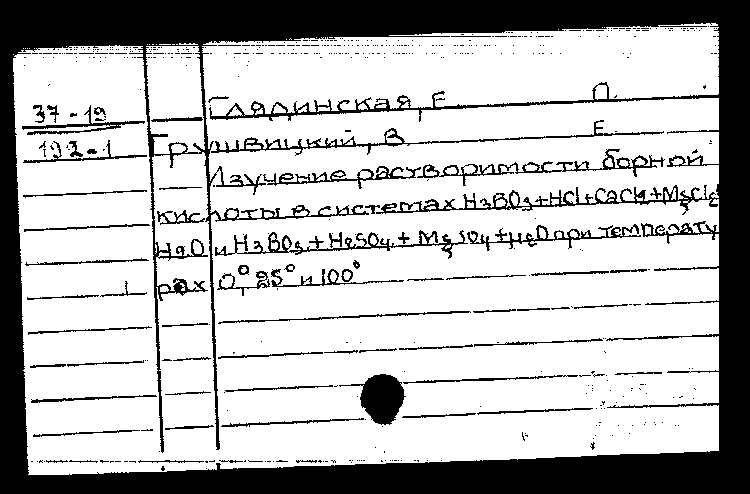 37-19 Глядинская, Е. П.
192-1 Грушвицкий, В. Е.
Изучение растворимости борной
кислоты в системах H3BO3+HCl+CaCl2+MgCl2
H2O и H3BO3+H2SO4+MgSO4+H2O при температу
рах 0°, 25° и 100°